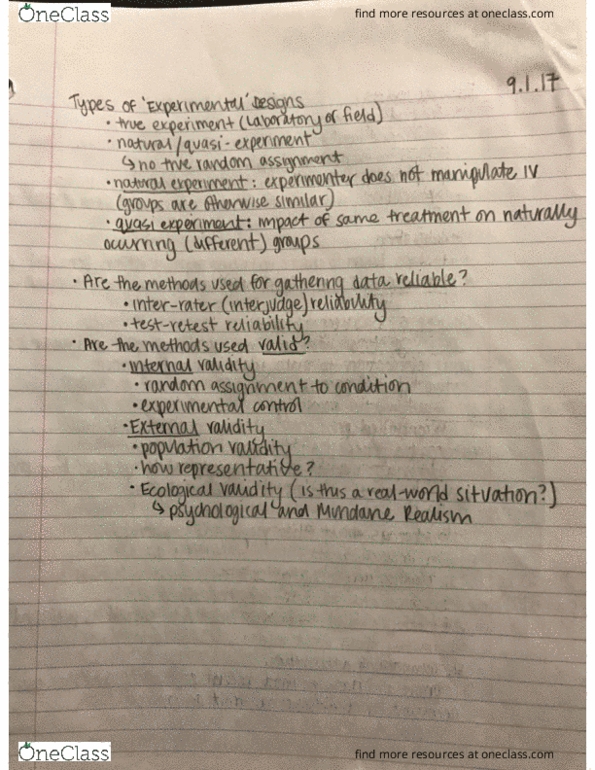 OneClass
find more resources at oneclass.com
9.1.17
Types of 'Experimental' Designs
• true experiment (Laboratory or field)
• natural/quasi-experiment
↳ no true random assignment
• natural experiment: experimenter does not manipulate IV
(groups are otherwise similar)
• quasi experiment: impact of same treatment on naturally
ocurring (different) groups
• Are the methods used for gathering data reliable?
• inter-rater (interjudge) reliability
• test-retest reliability
• Are the methods used valid?
• internal validity
• random assignment to condition
• experimental control
• External validity
• population validity
• how representative?
• Ecological validity (is this a real-world situation?)
↳ psychological and Mundane Realism
OneClass
find more resources at oneclass.com